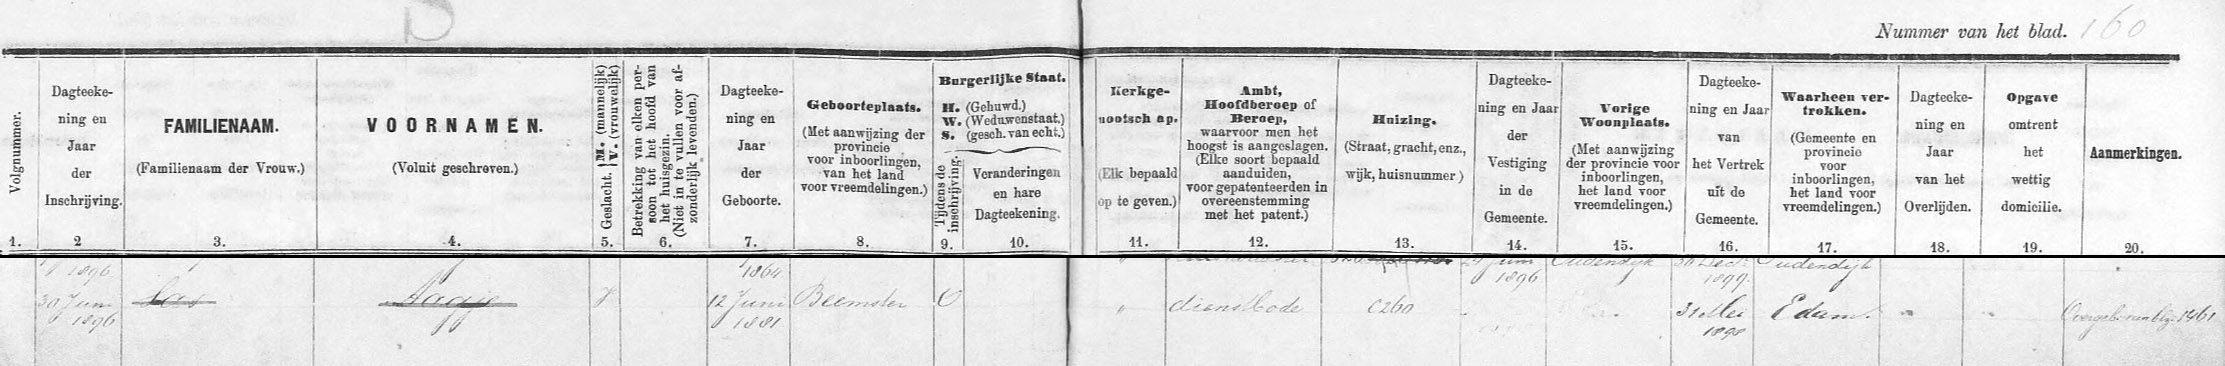 Nummer van het blad. 160
Volgnummer.
Dagteeke-
ning en
Jaar
der
Inschrijving.
FAMILIENAAM.
(Familienaam der Vrouw.)
VOORNAMEN.
(Voluit geschreven.)
Geslacht. M. (mannelijk)
V. (vrouwelijk)
Betrekking van elken per-
soon tot het hoofd van
het huisgezin.
(Niet in te vullen voor af-
zonderlijk levenden.)
Dagteeke-
ning en
Jaar
der
Geboorte.
Geboorteplaats.
(Met aanwijzing der
provincie
voor inboorlingen,
van het land
voor vreemdelingen.)
Burgerlijke Staat.
H. (Gehuwd.)
W. (Weduwenstaat.)
S. (gesch. van echt.)
Tijdens de
inschrijving.
Veranderingen
en hare
Dagteekening.
Kerkge-
nootschap.
(Elk bepaald
op te geven.)
Ambt,
Hoofdberoep of
Beroep,
waarvoor men het
hoogst is aangeslagen.
(Elke soort bepaald
aanduiden,
voor gepatenteerden in
overeenstemming
met het patent.)
Huizing.
(Straat, gracht, enz.,
wijk, huisnummer)
Dagteeke-
ning en Jaar
der
Vestiging
in de
Gemeente.
Vorige
Woonplaats.
(Met aanwijzing
der provincie voor
inboorlingen,
het land voor
vreemdelingen.)
Dagteeke-
ning en Jaar
van
het Vertrek
uit de
Gemeente.
Waarheen ver-
trokken.
(Gemeente en
provincie
voor
inboorlingen,
het land voor
vreemdelingen.)
Dagteeke-
ning en
Jaar
van het
Overlijden.
Opgave
omtrent
het
wettig
domicilie.
Aanmerkingen.
1. 2 3. 4. 5. 6. 7. 8. 9. 10. 11. 12. 13. 14. 15. 16. 17. 18. 19. 20.
1896 1864 Juni Oudendijk Dec. Oudendijk
1896 1899.
30 Juni Aagje V 12 Juni Beemster O " dienstbode C260 31 Mei Edam. 1461
1896 1881 1898